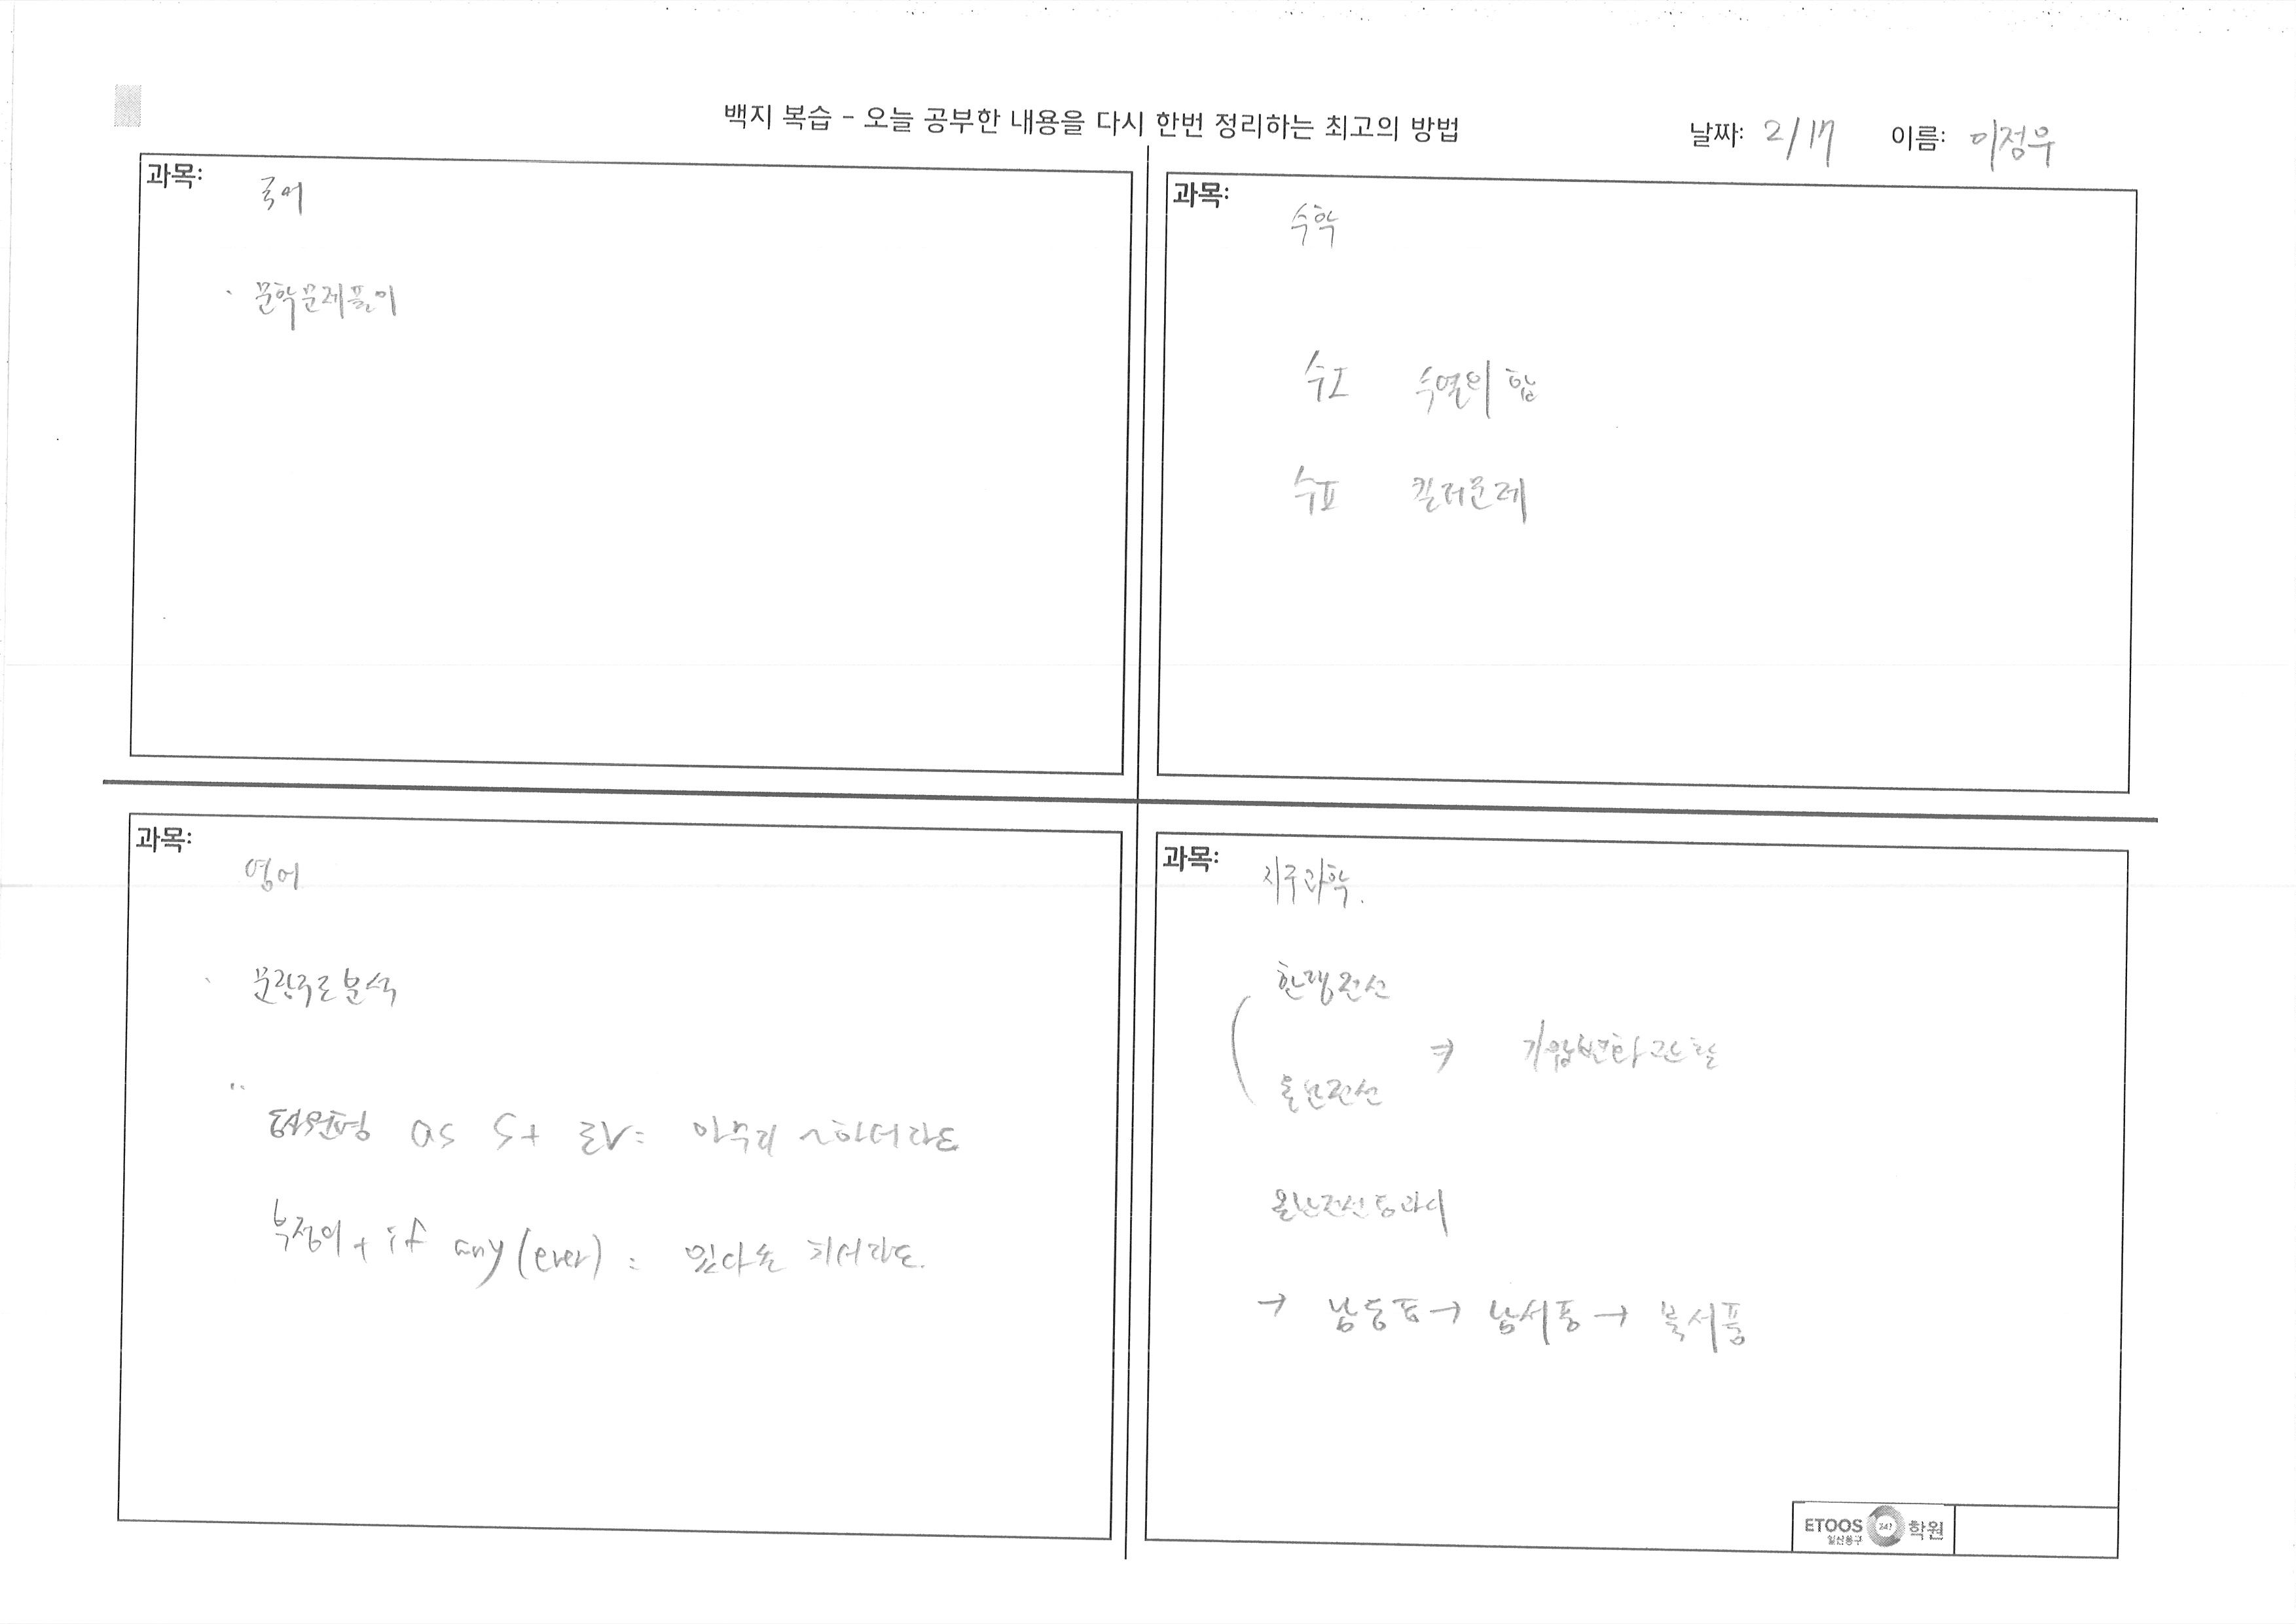 백지 복습 - 오늘 공부한 내용을 다시 한번 정리하는 최고의 방법
날짜: 2/17 이름: 이정우
과목: 국어
· 문학문제풀이
과목: 수학
수I 수열의 합
수II 킬러문제
과목: 영어
· 문장구조분석
as S+ 아무리 ~하더라도
부정어 + if any (ever) : 있다손 치더라도.
과목: 지구과학.
한랭전선
⇒ 기압변화관찰
온난전선
온난전선통과시
→ 남동풍 → 남서풍 → 북서풍
ETOOS 247 학원
일산동구